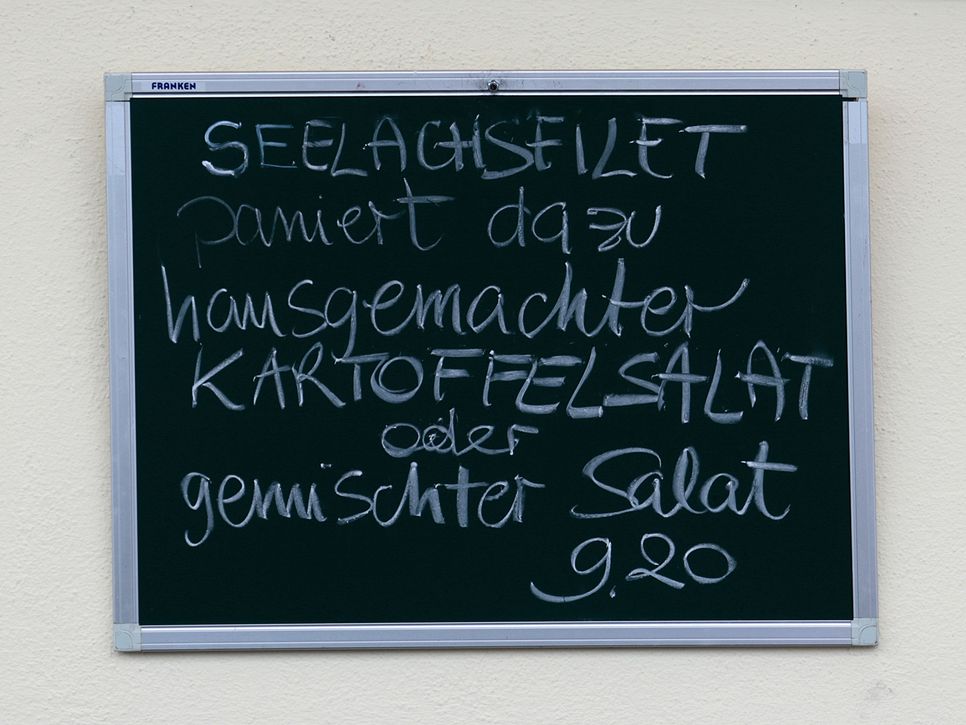 FRANKEN
SEELACHSFILET
paniert dazu
hausgemachter
KARTOFFELSALAT
oder
gemischter Salat
9.20